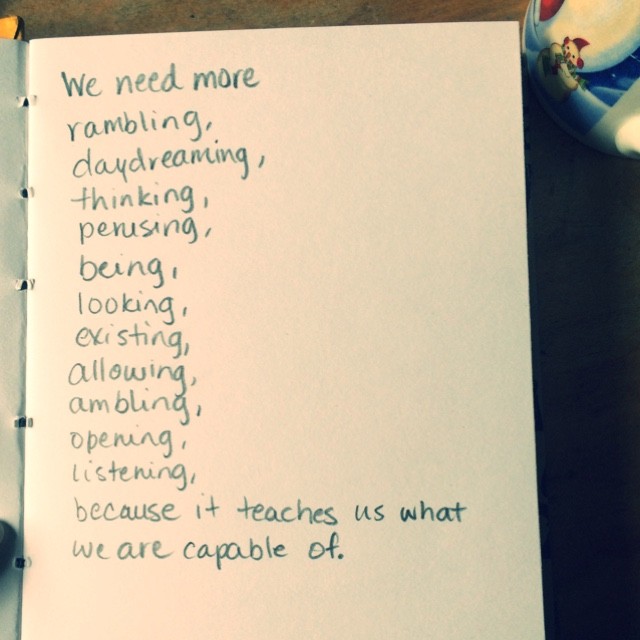 We need more
rambling,
daydreaming,
thinking,
perusing,
being,
looking,
existing,
allowing,
ambling,
opening,
listening,
because it teaches us what
we are capable of.